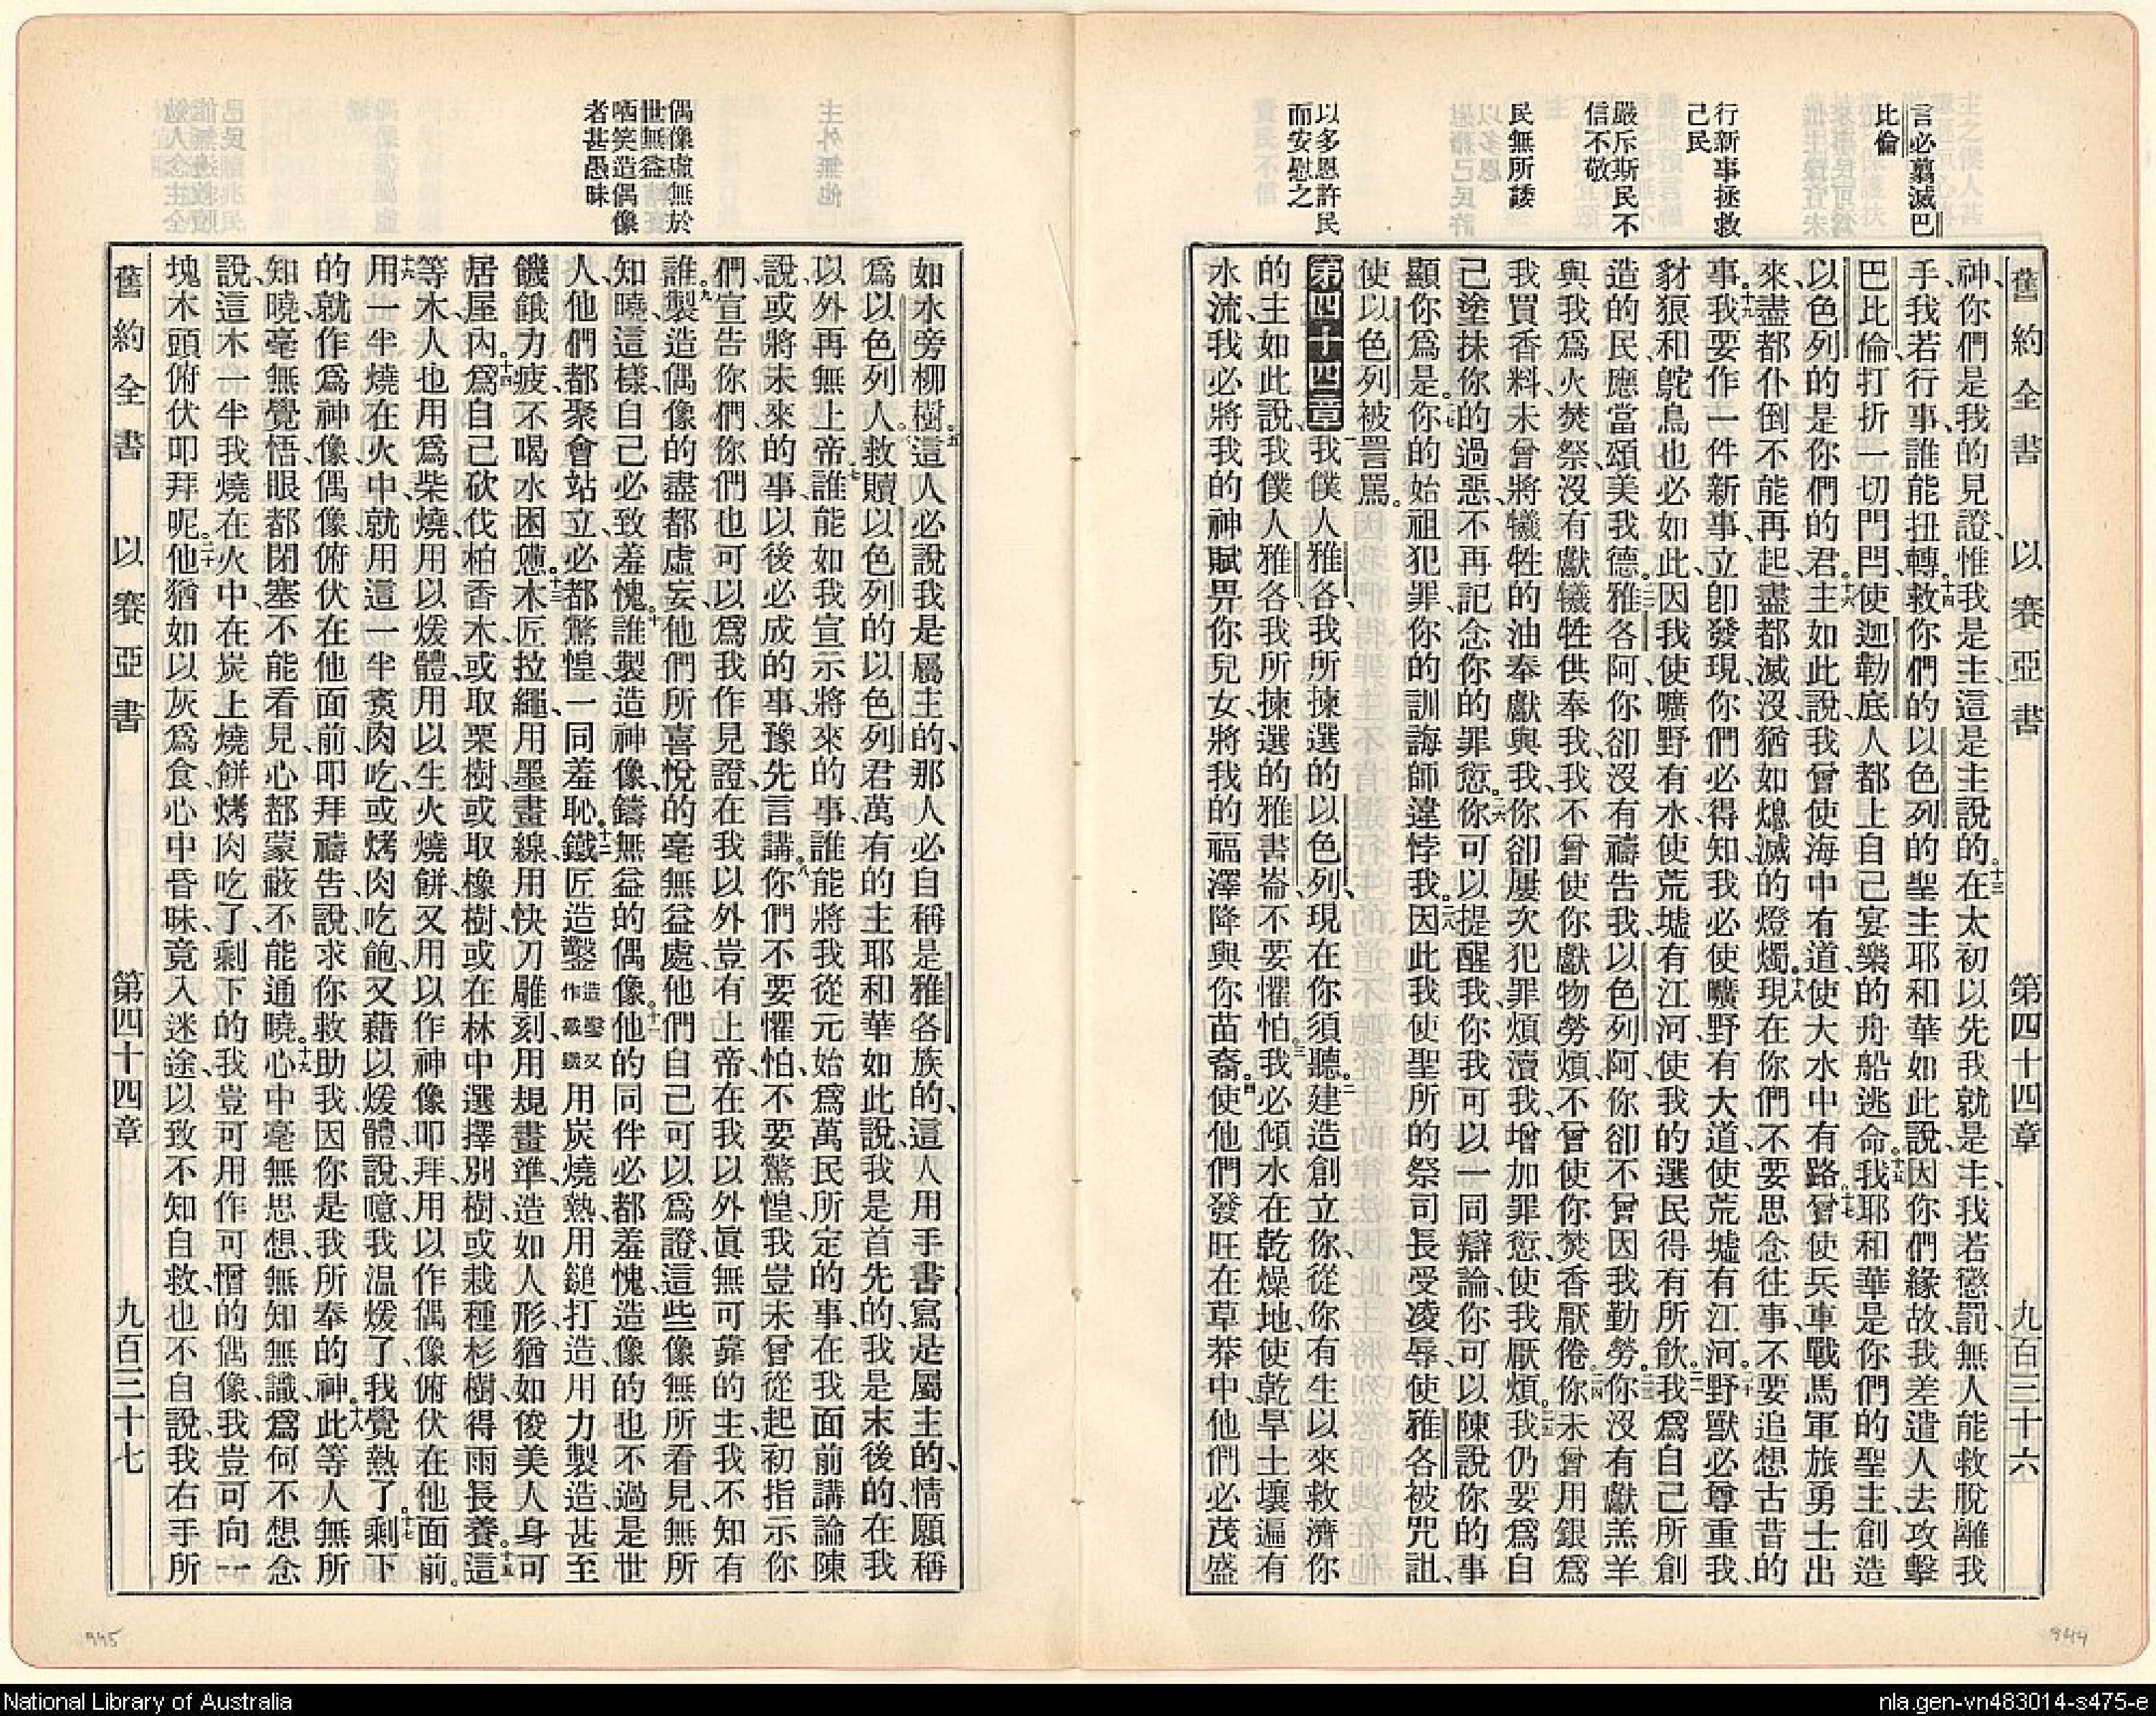 言必翦滅巴
比倫
行新事拯救
己民
嚴斥斯民不
信不敬
民無所諉
以多恩許民
而安慰之
舊約全書 以賽亞書 第四十四章 九百三十六
神、你們是我的見證、惟我是主、這是主說的。十三在太初以先我就是主、我若懲罰、無人能救脫離我
手、我若行事、誰能扭轉。十四救你們的以色列的聖主耶和華如此說、因你們緣故、我差遣人去攻擊
巴比倫、打折一切門閂、使迦勒底人都上自己宴樂的舟船逃命。十五我耶和華是你們的聖主、創造
以色列的、是你們的君。十六主如此說、我曾使海中有道、使大水中有路。十七曾使兵車戰馬軍旅勇士出
來、盡都仆倒、不能再起、盡都滅沒、猶如熄滅的燈燭。十八現在你們不要思念往事、不要追想古昔的
事。十九我要作一件新事、立卽發現、你們必得知、我必使曠野有大道、使荒墟有江河。二十野獸必尊重我、
豺狼和鴕鳥也必如此、因我使曠野有水、使荒墟有江河、使我的選民得有所飲。二一我爲自己所創
造的民、應當頌美我德。二二雅各阿、你卻沒有禱告我、以色列阿、你卻不曾因我勤勞。二三你沒有獻羔羊
與我爲火焚祭、沒有獻犧牲供奉我、我不曾使你獻物勞煩、不曾使你焚香厭倦。二四你未曾用銀爲
我買香料、未曾將犧牲的油奉獻與我、你卻屢次犯罪煩瀆我、增加罪愆、使我厭煩。二五我仍要爲自
己塗抹你的過惡、不再記念你的罪愆。二六你可以提醒我、你我可以一同辯論、你可以陳說你的事、
顯你爲是。二七你的始祖犯罪、你的訓誨師違悖我。二八因此我使聖所的祭司長受凌辱、使雅各被咒詛、
使以色列被詈罵。
第四十四章 一我僕人雅各、我所揀選的以色列、現在你須聽。二建造創立你、從你有生以來救濟你
的主如此說、我僕人雅各、我所揀選的雅書崙、不要懼怕。三我必傾水在乾燥地、使乾旱土壤遍有
水流、我必將我的神賦畀你兒女、將我的福澤降與你苗裔。四使他們發旺在草莽中、他們必茂盛
偶像虛無於
世無益
哂笑造偶像
者甚愚昧
如水旁柳樹。五這人必說我是屬主的、那人必自稱是雅各族的、這人用手書寫是屬主的、情願稱
爲以色列人。六救贖以色列的以色列君萬有的主耶和華如此說、我是首先的、我是末後的、在我
以外再無上帝。七誰能如我宣示將來的事、誰能將我從元始爲萬民所定的事、在我面前講論陳
說、或將未來的事、以後必成的事、豫先言講。八你們不要懼怕、不要驚惶、我豈未曾從起初指示你
們、宣告你們、你們也可以爲我作見證、在我以外豈有上帝、在我以外眞無可靠的主、我不知有
誰。九製造偶像的盡都虛妄、他們所喜悅的毫無益處、他們自己可以爲證、這些像無所看見、無所
知曉、這樣、自己必致羞愧。十誰製造神像、鑄無益的偶像。十一他的同伴必都羞愧、造像的也不過是世
人、他們都聚會站立、必都驚惶、一同羞恥。十二鐵匠造鑿造鑿又作截鐵用炭燒熟、用鎚打造、用力製造、甚至
饑餓力疲、不喝水困憊。十三木匠拉繩、用墨畫線、用快刀雕刻、用規畫準、造如人形、猶如俊美人身、可
居屋內。十四爲自己砍伐柏香木、或取栗樹、或取橡樹、或在林中選擇別樹、或栽種杉樹、得雨長養。十五這
等木、人也用爲柴燒、用以煖體、用以生火燒餅、又用以作神像叩拜、用以作偶像、俯伏在他面前。
十六用一半燒在火中、就用這一半煑肉吃、或烤肉吃飽、又藉以煖體、說、噫、我温煖了、我覺熱了。十七剩下
的就作爲神像、偶像、俯伏在他面前、叩拜禱告說、求你救助我、因你是我所奉的神。十八此等人無所
知曉、毫無覺悟、眼都閉塞不能看見、心都蒙蔽不能通曉。十九心中毫無思想、無知無識、爲何不想念
說、這木一半我燒在火中、在炭上燒餅烤肉吃了、剩下的我豈可用作可憎的偶像、我豈可向一
塊木頭俯伏叩拜呢。二十他猶如以灰爲食、心中昏昧、竟入迷途、以致不知自救、也不自說、我右手所
舊約全書 以賽亞書 第四十四章 九百三十七
945
944
National Library of Australia
nla.gen-vn483014-s475-e